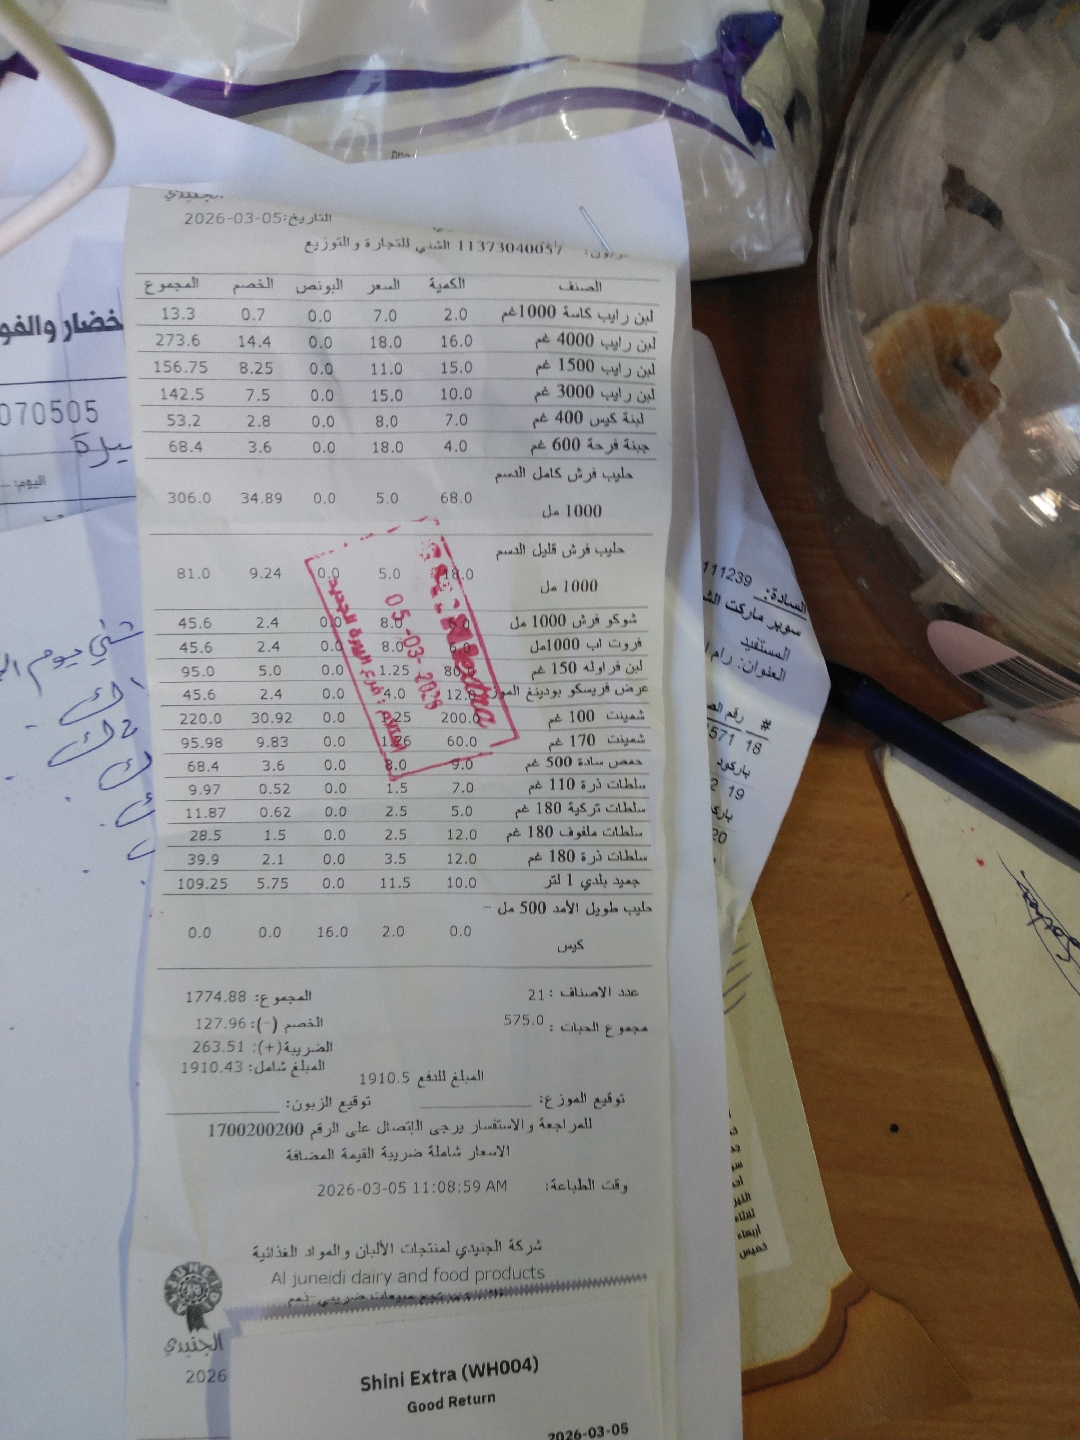 الجنيدي
التاريخ:2026-03-05
11373040057 الشني للتجارة والتوزيع
الصنف الكمية السعر البونص الخصم المجموع
لبن رايب كاسة 1000غم 2.0 7.0 0.0 0.7 13.3
لبن رايب 4000 غم 16.0 18.0 0.0 14.4 273.6
لبن رايب 1500 غم 15.0 11.0 0.0 8.25 156.75
لبن رايب 3000 غم 10.0 15.0 0.0 7.5 142.5
لبنة كيس 400 غم 7.0 8.0 0.0 2.8 53.2
جبنة فرحة 600 غم 4.0 18.0 0.0 3.6 68.4
حليب فرش كامل الدسم
1000 مل 68.0 5.0 0.0 34.89 306.0
حليب فرش قليل الدسم
1000 مل 18.0 5.0 0.0 9.24 81.0
شوكو فرش 1000 مل 6.0 8.0 0.0 2.4 45.6
فروت اب 1000مل 6.0 8.0 0.0 2.4 45.6
لبن فراوله 150 غم 80.0 1.25 0.0 5.0 95.0
عرض فريسكو بودينغ الموز 12.0 4.0 0.0 2.4 45.6
شمينت 100 غم 200.0 1.25 0.0 30.92 220.0
شمينت 170 غم 60.0 1.76 0.0 9.83 95.98
حمص سادة 500 غم 9.0 8.0 0.0 3.6 68.4
سلطات ذرة 110 غم 7.0 1.5 0.0 0.52 9.97
سلطات تركية 180 غم 5.0 2.5 0.0 0.62 11.87
سلطات ملفوف 180 غم 12.0 2.5 0.0 1.5 28.5
سلطات ذرة 180 غم 12.0 3.5 0.0 2.1 39.9
جميد بلدي 1 لتر 10.0 11.5 0.0 5.75 109.25
حليب طويل الأمد 500 مل -
كيس 0.0 2.0 16.0 0.0 0.0
عدد الاصناف :21 المجموع: 1774.88
مجموع الحبات : 575.0 الخصم (-): 127.96
الضريبة(+): 263.51
المبلغ شامل: 1910.43
المبلغ للدفع 1910.5
توقيع الموزع: توقيع الزبون:
للمراجعة والاستفسار يرجى الإتصال على الرقم 1700200200
الاسعار شاملة ضريبة القيمة المضافة
وقت الطباعة: 2026-03-05 11:08:59 AM
شركة الجنيدي لمنتجات الألبان والمواد الغذائية
Al juneidi dairy and food products
JUNEIDI
الجنيدي
2026
Shini Extra (WH004)
Good Return
2026-03-05
05-03-2026
070505
اليوم:
111239
السادة:
سوبر ماركت
المستفيد
العنوان: رام
#
18
باركود
19
20
أربعاء
خميس